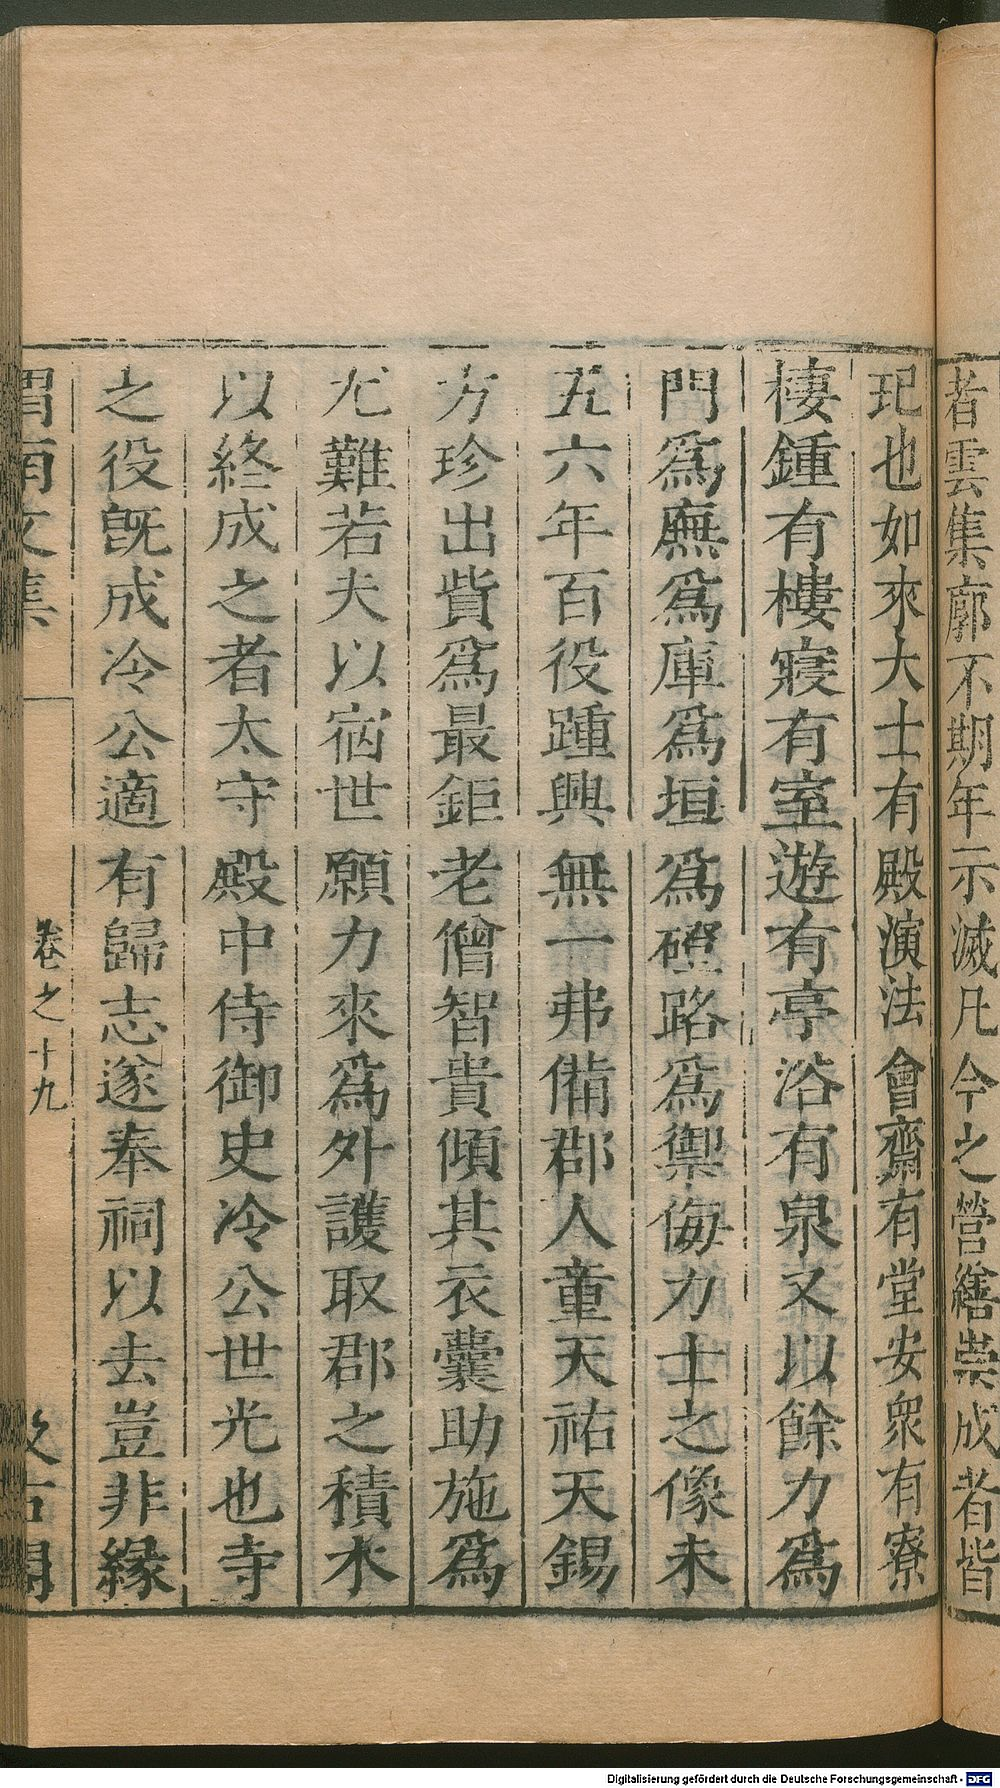 者雲集廓不期年示滅凡今之營繕崇成者皆
玘也如來大士有殿演法會齋有堂安衆有寮
棲鍾有樓寢有室遊有亭浴有泉又以餘力爲
門爲廡爲庫爲垣爲磴路爲禦侮力士之像未
五六年百役踵興無一弗備郡人童天祐天錫
方珍出貲爲最鉅老僧智貴傾其衣囊助施爲
尤難若夫以宿世願力來爲外護取郡之積水
以終成之者太守殿中侍御史冷公世光也寺
之役旣成冷公適有歸志遂奉祠以去豈非緣
渭南文集 卷之十九 汲古閣
Digitalisierung gefördert durch die Deutsche Forschungsgemeinschaft - DFG